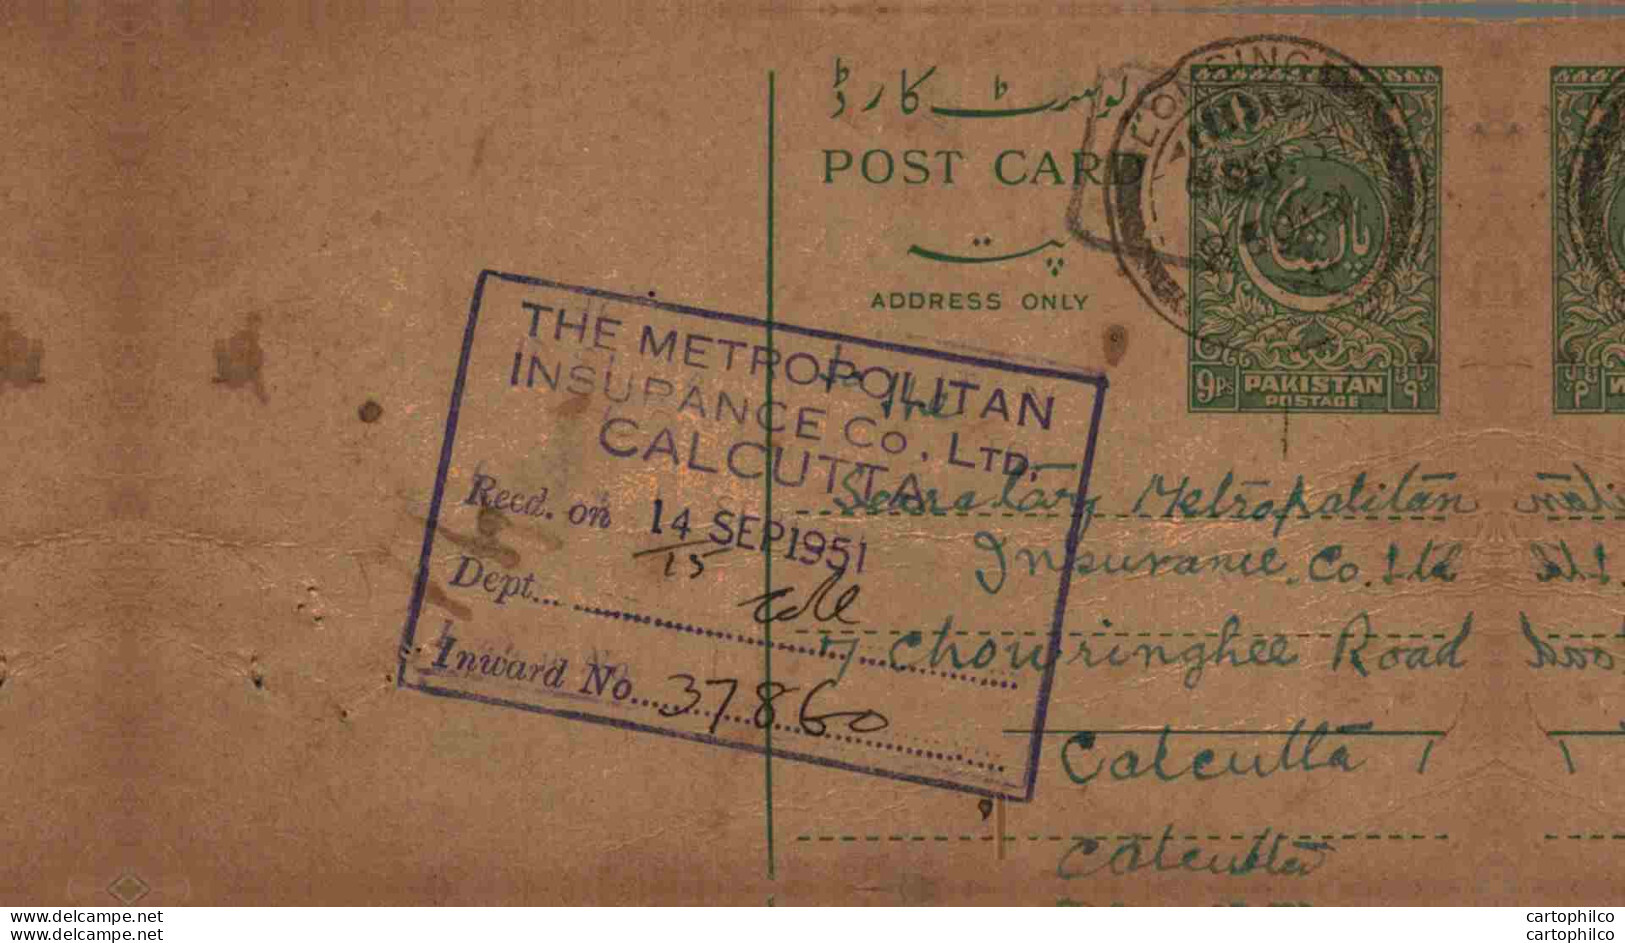 پوسٹ کارڈ
POST CARD
پتہ
ADDRESS ONLY
LONSING
SEP
پاکستان
9Ps PAKISTAN POSTAGE ۹
THE METROPOLITAN
INSURANCE CO. LTD.
CALCUTTA
Recd. on 14 SEP 1951
15
Dept.
Inward No. 37860
to the
Secretary Metropolitan
Insurance. Co. Ltd
7 Chowringhee Road
Calcutta
Calcutta
www.delcampe.net
www.delcampe.net
cartophilco
cartophilco